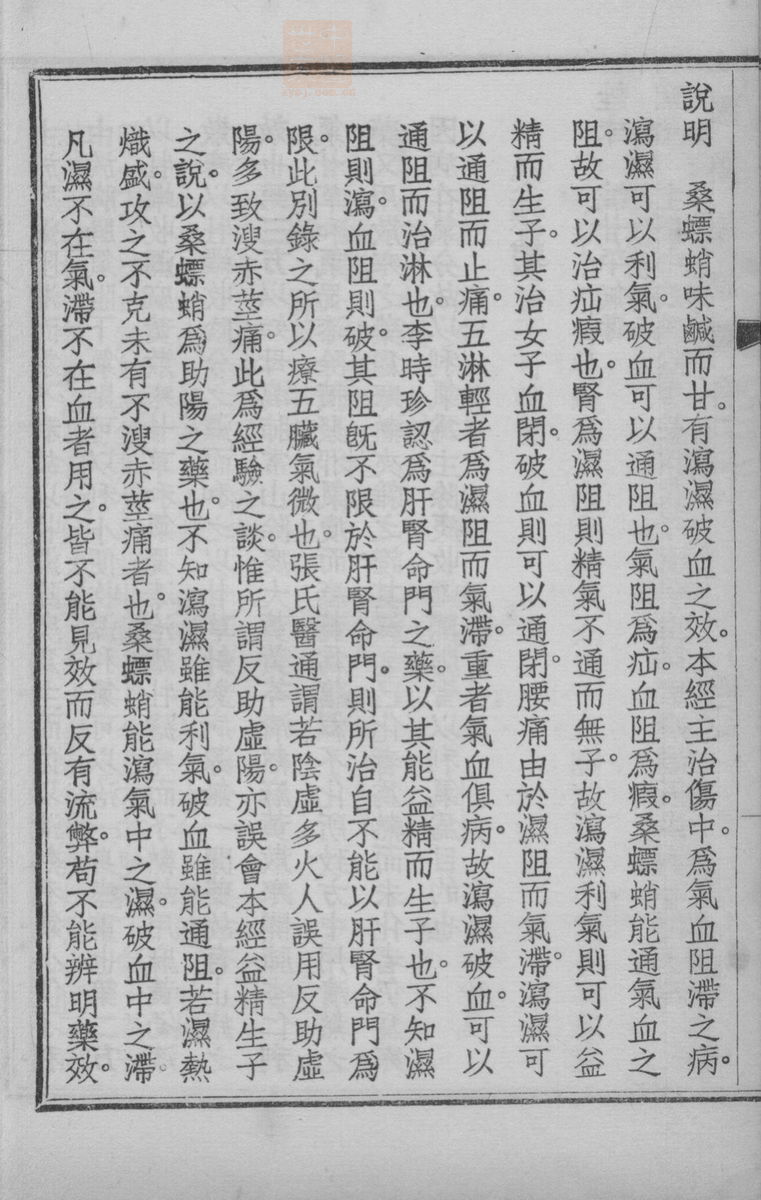 說明　桑螵蛸味鹹而甘。有瀉濕破血之效。本經主治傷中。爲氣血阻滯之病。
瀉濕可以利氣。破血可以通阻也。氣阻爲疝。血阻爲瘕。桑螵蛸能通氣血之
阻。故可以治疝瘕也。腎爲濕阻則精氣不通而無子。故瀉濕利氣則可以益
精而生子。其治女子血閉。破血則可以通閉。腰痛由於濕阻而氣滯。瀉濕可
以通阻而止痛。五淋輕者爲濕阻而氣滯。重者氣血俱病。故瀉濕破血。可以
通阻而治淋也。李時珍認爲肝腎命門之藥。以其能益精而生子也。不知濕
阻則瀉。血阻則破。其阻旣不限於肝腎命門。則所治自不能以肝腎命門爲
限。此別錄之所以療五臟氣微也。張氏醫通謂若陰虛多火人誤用反助虛
陽。多致溲赤莖痛。此爲經驗之談。惟所謂反助虛陽。亦誤會本經益精生子
之說。以桑螵蛸爲助陽之藥也。不知瀉濕雖能利氣。破血雖能通阻。若濕熱
熾盛。攻之不克未有不溲赤莖痛者也。桑螵蛸能瀉氣中之濕。破血中之滯。
凡濕不在氣。滯不在血者用之。皆不能見效而反有流弊。苟不能辨明藥效。